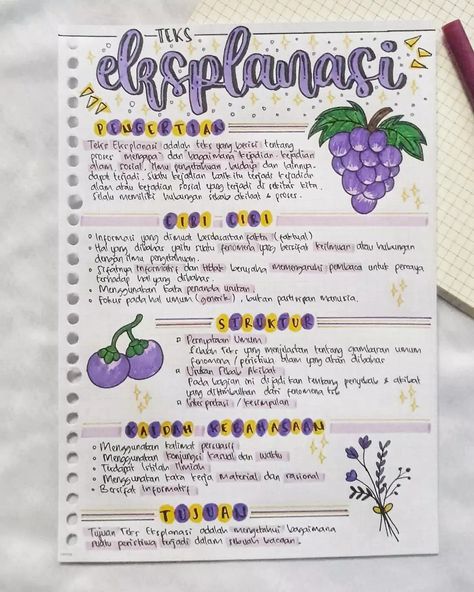 TEKS
eksplanasi
PENGERTIAN
Teks Eksplanasi adalah teks yang berisi tentang
proses "mengapa" dan bagaimana kejadian-kejadian
alam, sosial, ilmu pengetahuan, budaya dan lainnya
dapat terjadi. Suatu kejadian baik itu terjadi kejadian
alam atau kejadian sosial yang terjadi di sekitar kita.
Selalu memiliki hubungan sebab akibat & proses.
CIRI CIRI
Informasi yang dimuat berdasarkan fakta (faktual)
Hal yang dibahas yaitu suatu fenomena yang bersifat keilmuan atau hubungan
dengan ilmu pengetahuan.
Sifatnya informatif dan tidak berusaha memengaruhi pembaca untuk percaya
terhadap hal yang dibahas.
Menggunakan kata penanda urutan.
Fokus pada hal umum (generik), bukan partisipan manusia.
STRUKTUR
Pernyataan Umum
teks yang menjelaskan tentang gambaran umum
fenomena / peristiwa alam yang akan dibahas
Urutan Sebab Akibat
Pada bagian ini dijadikan tentang penyebab & akibat
yang ditimbulkan dari fenomena tsb
Interpretasi / kesimpulan
KAIDAH KEBAHASAAN
Menggunakan kalimat persuasif
Menggunakan konjungsi kausal dan waktu
Terdapat Istilah Ilmiah
Menggunakan kata kerja material dan rasional
Bersifat Informatif
TUJUAN
Tujuan Teks Eksplanasi adalah mengetahui bagaimana
suatu peristiwa terjadi dalam sebuah bacaan.